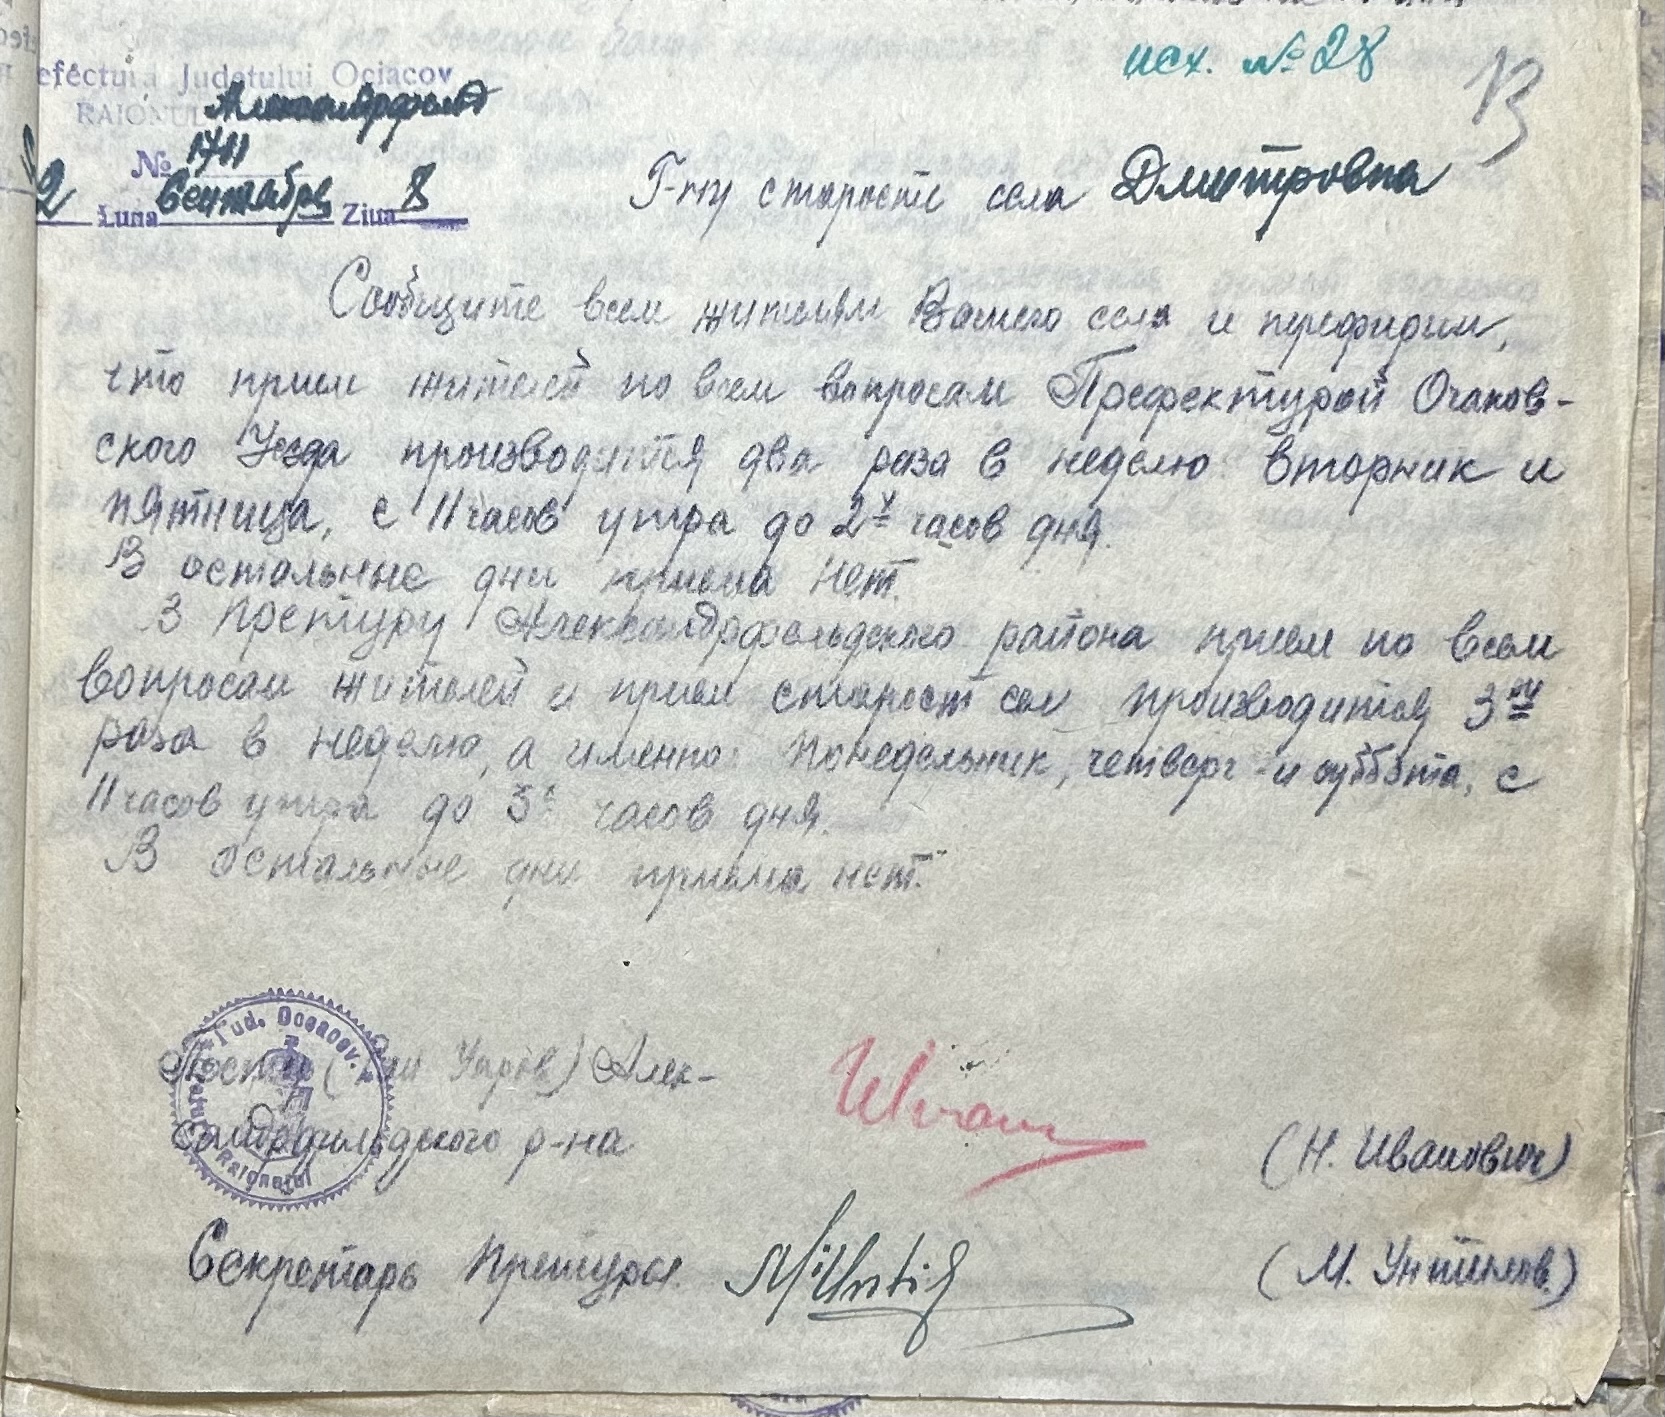 исх. № 28
13
efectura Judetului Ociacov
RAIONUL Александрфельд
№ 1711
2 Luna Сентября Ziua 8
Г-ну старосте села Дмитровка
Сообщите всем жителям Вашего села и
что прием жителей по всем вопросам Префектурой Очаков-
ского Уезда производится два раза в неделю: вторник и
пятница, с 11 часов утра до 2х часов дня.
В остальные дни приема нет.
В Претуру Александрфельдского района прием по всем
вопросам жителей и прием старост сел производится 3и
раза в неделю, а именно: понедельник, четверг и суббота, с
11 часов утра до 3х часов дня.
В остальные дни приема нет.
Jud. Oceacov.
Raionului
Алек-
сандрфельдского р-на
(Н. Иванович)
Секретарь Претуры
(М. Унтилов.)